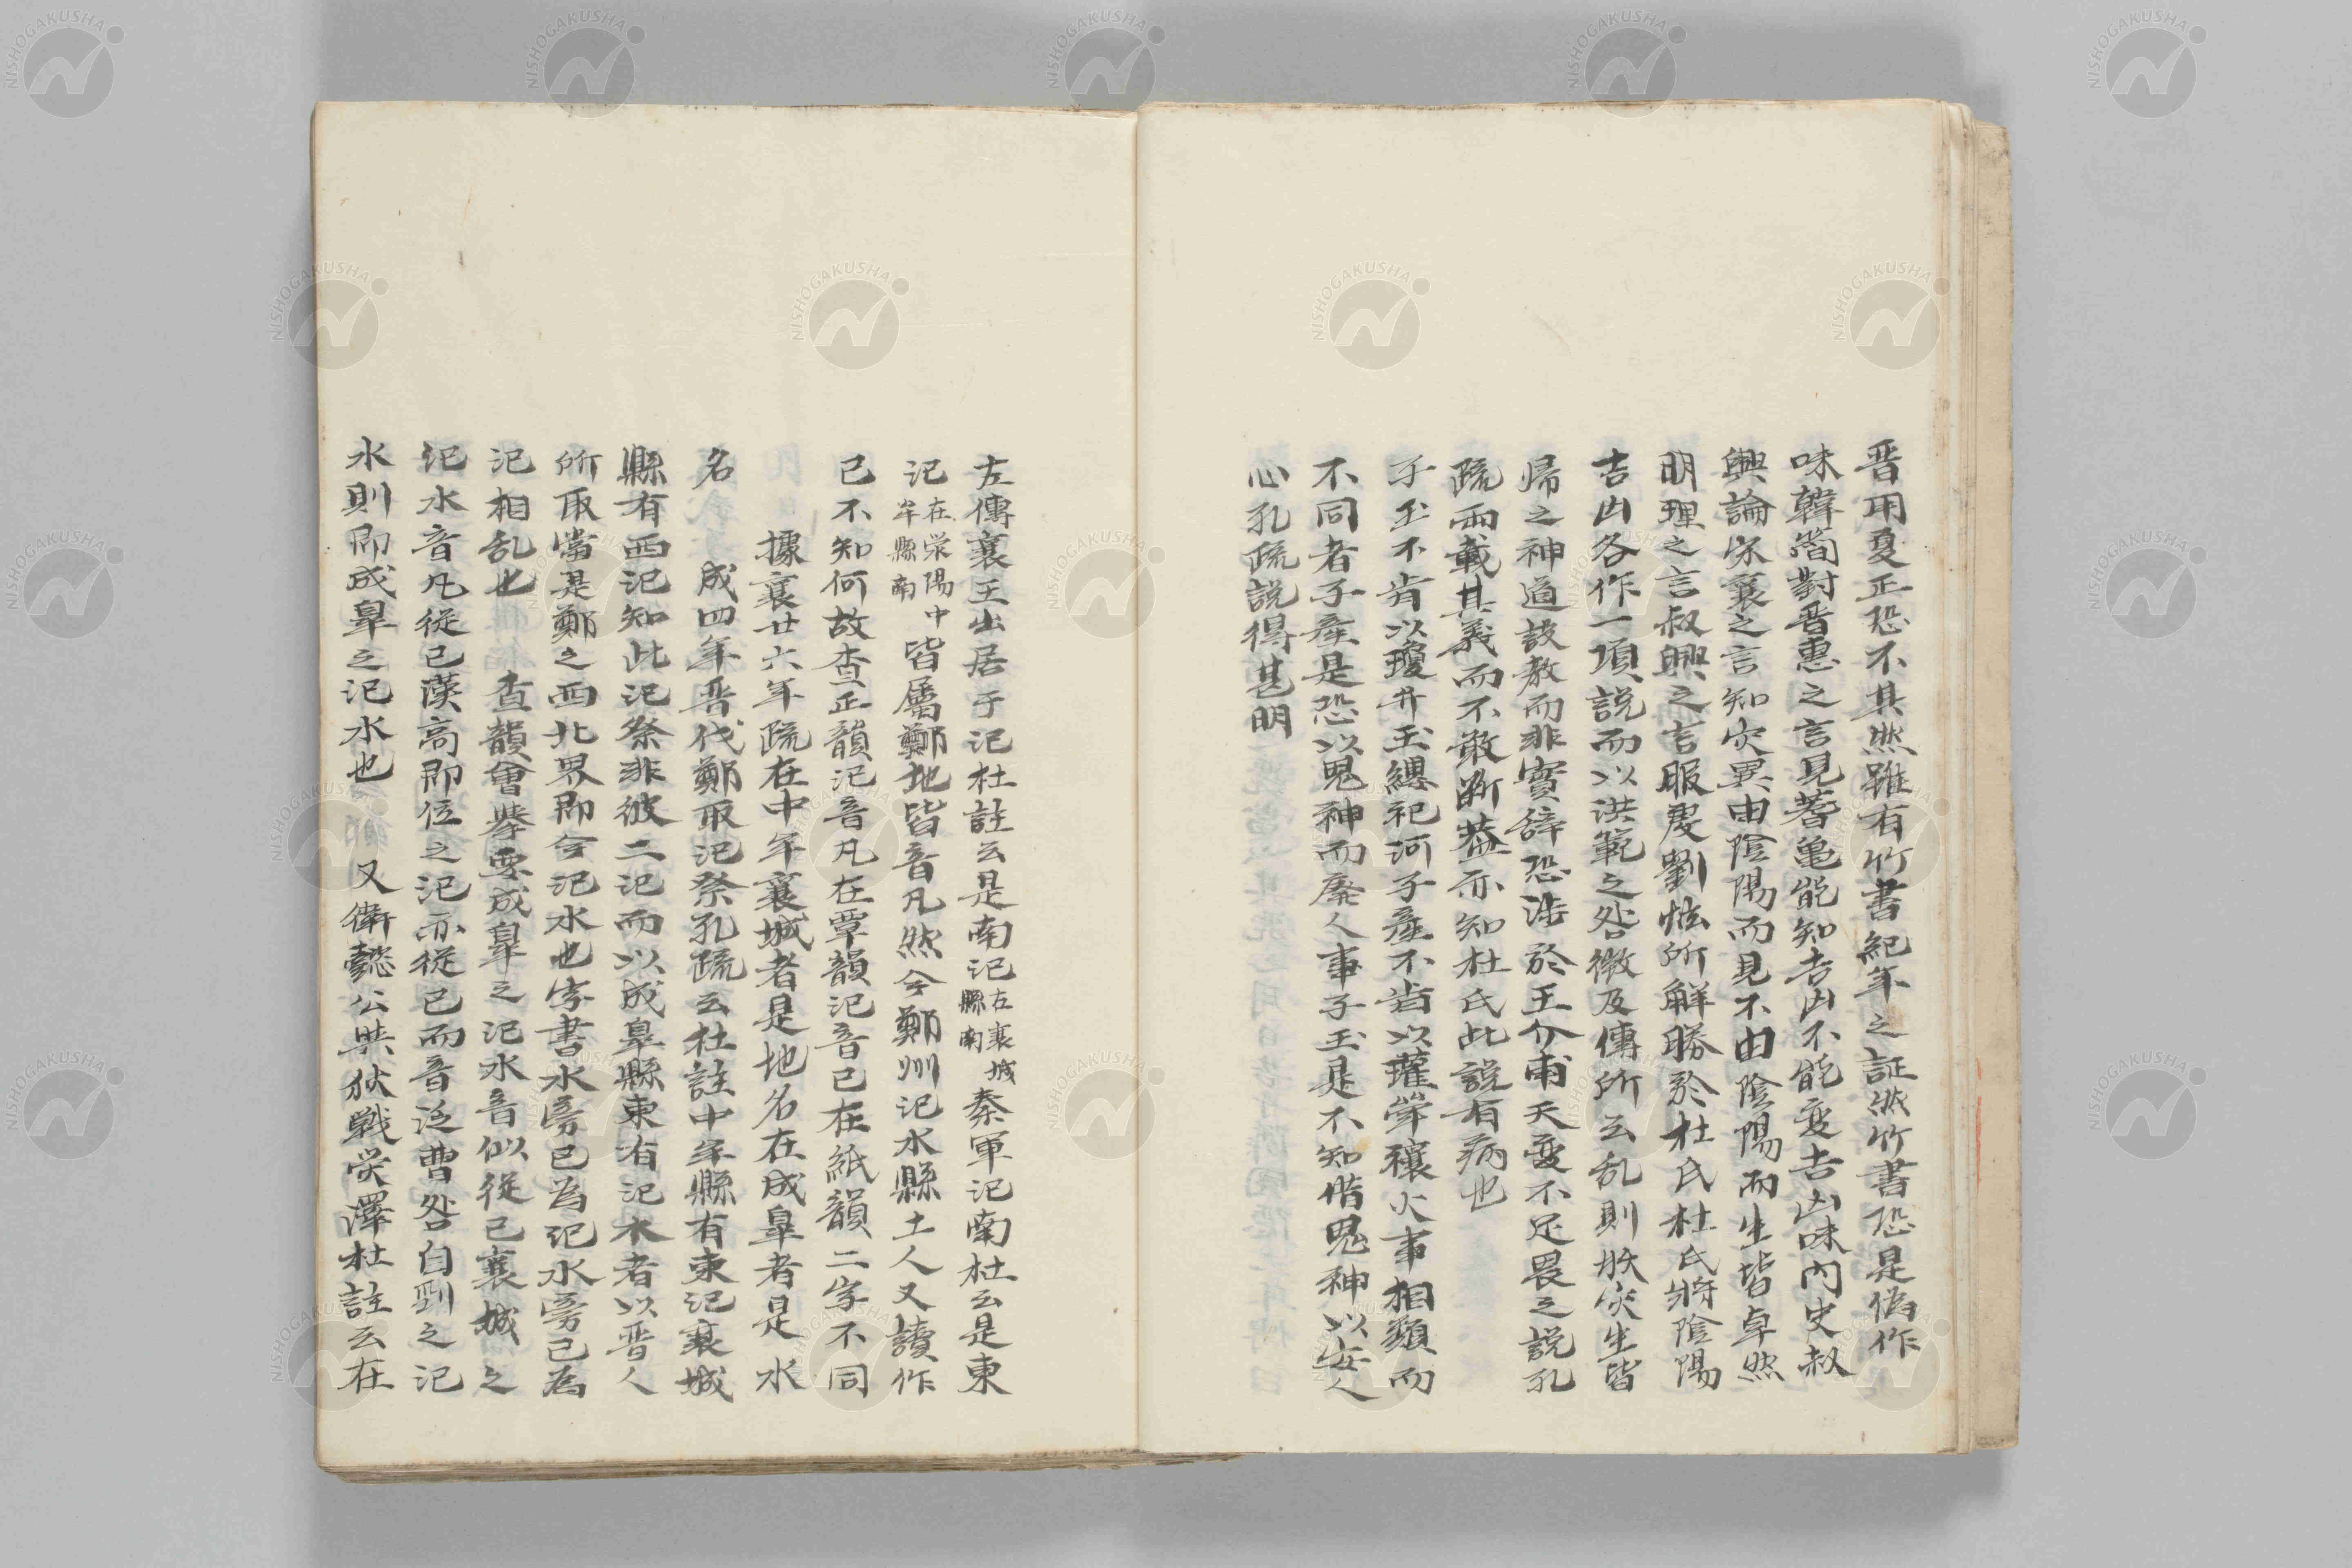 晋用夏正恐不其然雖有竹書紀年之証然竹書恐是偽作
味韓簡對晋惠之言見蓍亀能知吉凶不能变吉凶味内史叔
興論宋襄之言知灾異由陰陽而見不由陰陽而生皆卓然
明理之言叔興之言服虔劉炫所解勝於杜氏杜氏将陰陽
吉凶各作一項説而以洪範之咎徴及傳所云乱則妖灾生皆
帰之神道設教而非實辞恐涉於王介甫天變不足畏之説孔
疏兩載其義而不敢断葢亦知杜氏此説有病也
子玉不肯以瓊弁玉纓祀河子産不肯以瓘斝禳火事相類而
不同者子産是恐以鬼神而廢人事子玉是不知借鬼神以安人
心孔疏説得甚明
左傳襄王出居于氾杜註云是南氾在襄城縣南秦軍氾南杜云是東
氾在荥陽中牟縣南皆屬鄭地皆音凡然今鄭州汜水縣土人又讀作
已不知何故查正韻氾音凡在覃韻汜音已在紙韻二字不同
據襄廿六年疏在中年襄城者是地名在成皐者是水
名　成四年晋伐鄭取汜祭孔疏云杜註中牟縣有東汜襄城
縣有西汜知此汜祭非彼二汜而以成皐縣東有汜水者以晋人
所取當是鄭之西北界即今汜水也字書水旁巳為汜水旁㔾為
氾相乱也　查韻會舉要成皐之汜水音似從已襄城之
氾水音凡從㔾漢高即位之氾亦從㔾而音泛曹咎自剄之汜
水則即成皐之汜水也　又衛懿公與狄戦荥澤杜註云在
NISHOGAKUSHA